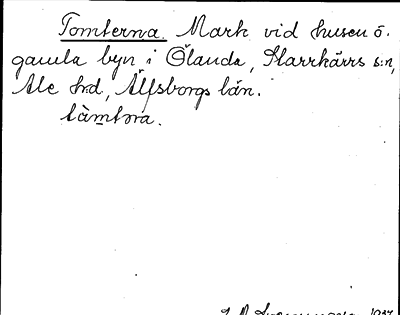 Tomterna. Mark vid husen ö.
gamla byn i Ölanda, Starrkärrs s:n,
Ale hrd, Älfsborgs län.
tàmtəra.
1937